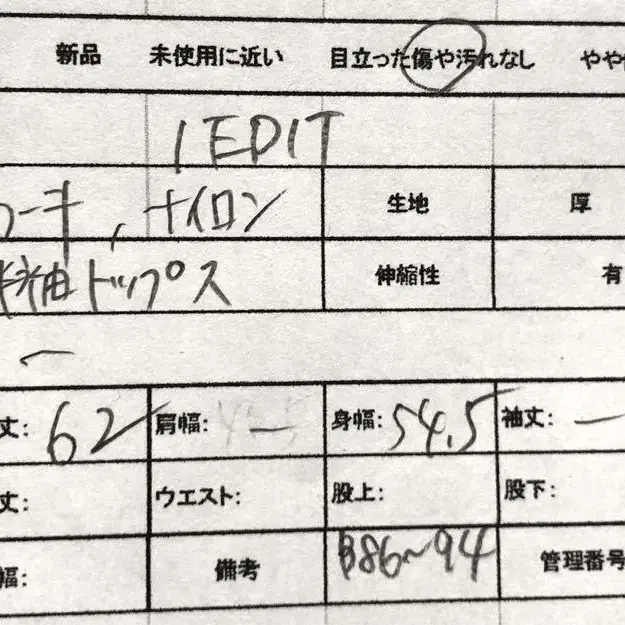 新品 未使用に近い 目立った傷や汚れなし やや
1 EDIT
カーキ, ナイロン 生地 厚
半袖トップス 伸縮性 有
丈: 62 肩幅: ー 身幅: 54.5 袖丈: ー
丈: ウエスト: 股上: 股下:
幅: 備考 B86~94 管理番号